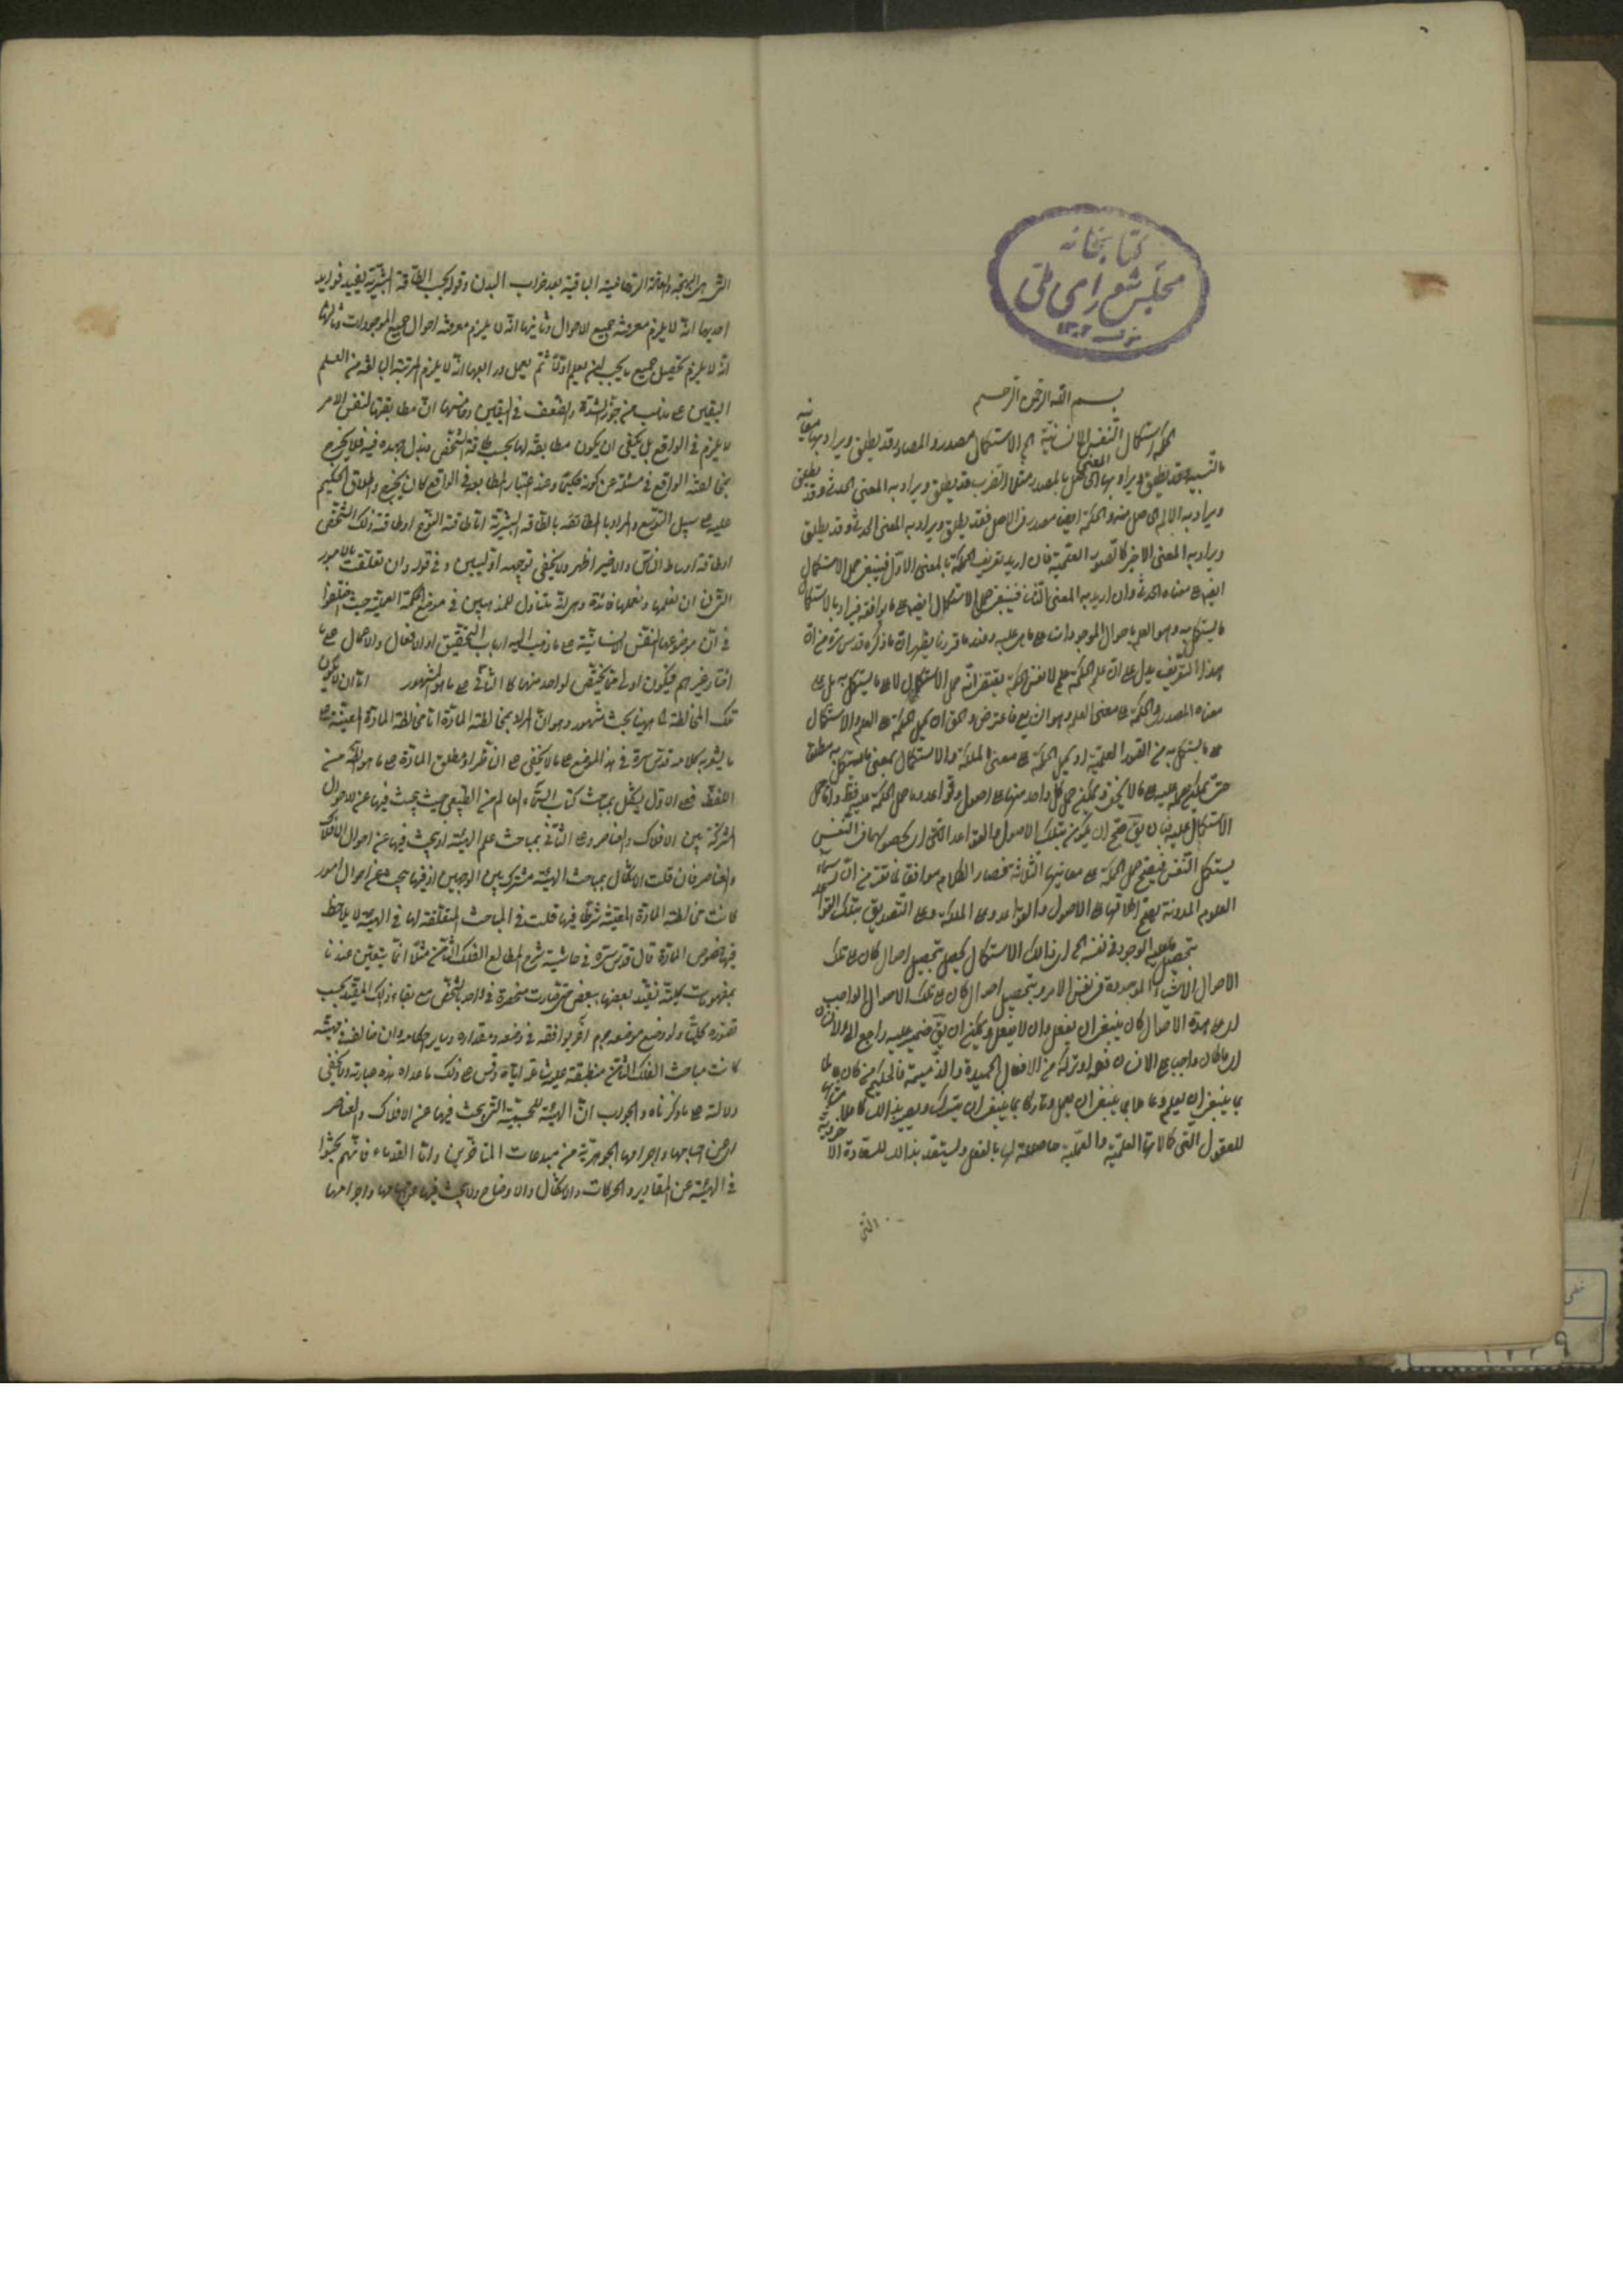 كتابخانه
مجلس شورای ملی
بسم الله الرحمن الرحيم
الحكمة استكمال النفس الانسانية الخ الاستكمال مصدر والمصادر قد يطلق ويراد بها معانيه
بالنسبية وقد يطلق ويراد بها المعنى الحاصل بالمصدر مثلا الضرب قد يطلق ويراد به المعنى الحدثى وقد يطلق
ويراد به الالم الحاصل منه والحكمة ايضا مصدر فى الاصل فقد يطلق ويراد به المعنى الحدثى وقد يطلق
ويراد به المعنى الاخير كالصور العلمية فان اريد بتعريف الحكمة بالمعنى الاول فينبغى حمل الاستكمال
ايضا على معناه الحدثى وان اريد به المعنى الثانى فينبغى حمل الاستكمال ايضا على ما يوافقه فيراد بالاستكمال
ما يستكمل به وهو العلم باحوال الموجودات على ما هى عليه وعند ما قررنا يظهر ان ما ذكره قدس سره من ان
هذا التعريف يدل على ان علم الحكمة علم لا نفس الحكمة يقتضى انه حمل الاستكمال لا على ما يستكمل به بل على
معناه المصدرى والحكمة على معنى العلم
على ما يستكمل به من الصور العلمية او يحمل الحكمة على معنى الملكة والاستكمال بمعنى ما يستكمل به مطلقا
حتى يمكن حمله عليه على ما لا يخفى ويمكن حمل كل واحد منهما على اصول وقواعد وحمل الحكمة عليه فظ واما حمل
الاستكمال عليه فبان يق صح ان يكون بتلك الاصول والقواعد التى لحصولها فى النفس
يستكمل النفس فيصح حمل الحكمة على معانيها الثلاثة فصار الكلام موافقا لما تقرر من ان اسماء
العلوم المدونة يصح اطلاقها على الاصول والقواعد وعلى الملكة وعلى التصديق بتلك القواعد
بتحصيل ما عليه الوجود فى نفسه الخ اى ذالك الاستكمال يحصل بتحصيل احوال كان على تلك
الاحوال الاشياء الموجودة فى نفس الامر وبتحصيل احوال كان على تلك الاحوال الواجب
اى على هذه الاحوال كان ينبغى ان يفعل وان لا يفعل ويمكن ان يق ضمير عليه راجع الى الانسان
اى ما كان واجبا على الانسان فعله او تركه من الافعال الحميدة والذميمة فالحكيم من كان عالما
بما ينبغى ان يعلم وعاملا بما ينبغى ان يعمل وتاركا بما ينبغى ان يترك ويصير بذالك كاملا مشابها
للعقول التى كمالاتها العلمية والعملية حاصلة لها بالفعل وليستعد بذالك للسعادة الاخروية
التى
التى هى البهجة واللذة الروحانية الباقية بعد خراب البدن وقوله بحسب الطاقة البشرية يفيد فوايد
احديها انه لا يلزم معرفة جميع الاحوال وثانيها انه لا يلزم معرفة احوال جميع الموجودات وثالثها
انه لا يلزم تحصيل جميع ما يجب ان يعلم اولا ثم يعمل ورابعها انه لا يلزم المرتبة البالغة من العلم
اليقين على مذهب من جوز الشدة والضعف فى اليقين وخامسها ان مطابقتها لنفس الامر
لا يلزم فى الواقع بل يكفى ان يكون مطابقة لها بحسب طاقة الشخص وبذل جهده فيه فلا يخرج
بمخالفته الواقع فى مسئلة عن كونه حكيما وعند اعتبار المطابقة فى الواقع كان يخرج واطلاق الحكيم
عليه على سبيل التوسع والمراد بالطاقة البشرية اما طاقة النوع او طاقة ذلك الشخص
او طاقة اوساط الناس والاخير اظهر ولا يخفى توجيه الاوليين وفى قوله وان تعلقت بالامور
التى لنا ان نعلمها ونعملها فائدة وهى انه يتناول للمذهبين فى موضوع الحكمة العملية حيث اختلفوا
فى ان موضوعها النفس الانسانية على ما ذهب اليه ارباب التحقيق او الافعال والاعمال على ما
اختاره غيرهم فيكون اولى مما يختص لواحد منهما كالثانى على ما هو المشهور اما ان لا يكون
تلك المخالطة الخ ههنا بحث مشهور وهو ان المراد بمخالطة المادة اما مخالطة المادة المعينة على
ما يشعر به كلامه قدس سره فى هذا الموضع على ما لا يخفى على الناظر او مطلق المادة على ما هو الظ من
اللفظ فعلى الاول يشكل بمباحث كتاب السماء والعالم من الطبيعى حيث يبحث فيها عن الاحوال
المشتركة بين الافلاك والعناصر وعلى الثانى بمباحث علم الهيئة اذ يبحث فيها عن احوال الافلاك
والعناصر فان قلت الاشكال بمباحث الهيئة مشترك بين الوجهين اذ فيها يبحث عن احوال امور
كانت مخالطة المادة المعينة شرطا فيها قلت فى المباحث المتعلقة لها فى الهيئة لا يلاحظ
فيها خصوص المادة قال قدس سره فى حاشية شرح المطالع الفلك الثامن مثلا انما يتعين عندنا
بمفهومات كلية نقيد بعضها ببعض حتى صارت منحصرة فى واحد بالشخص مع بقاء ذلك المقيد بحسب
تصوره كليا ولو وضع موضعه جرم اخر يوافقه فى وضعه ومقداره وساير احكامه وان خالفه فى مهيته
كانت مباحث الفلك الثامن منطبقة عليه شاملة اياه وقس على ذلك ما عداه هذه عبارته ولا يخفى
دلالته على ما ذكرناه والجواب ان الهيئة المجسمة التى يبحث فيها عن الافلاك والعناصر
اى عن اجسامها واجرامها الجوهرية من مبدعات المتاخرين واما القدماء فانهم بحثوا
فى الهيئة عن المقادير والحركات والاشكال والاوضاع ولا يبحث فيها عن اجسامها واجرامها